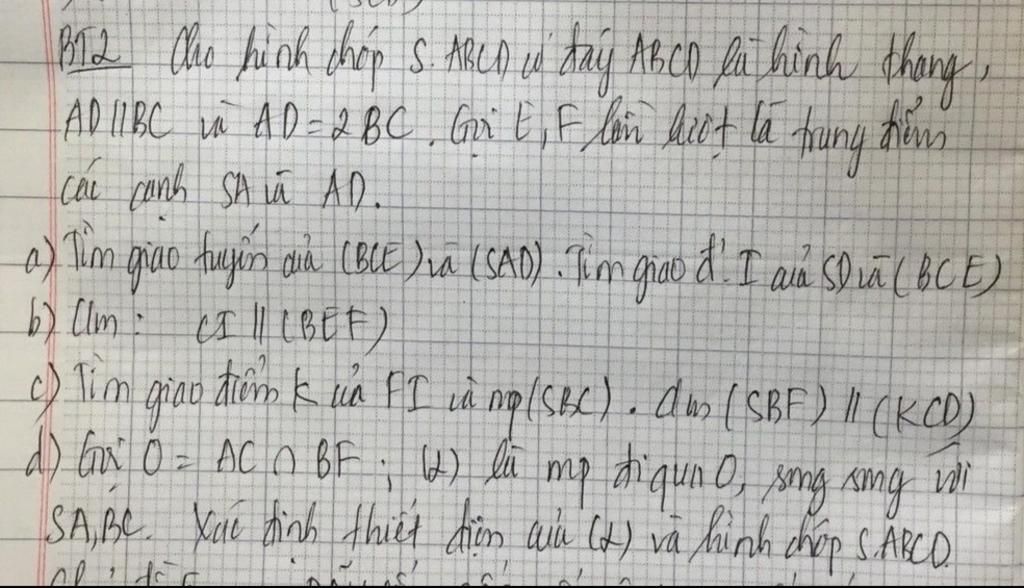 BT2 Cho hình chóp S.ABCD có đáy ABCD là hình thang,
AD//BC và AD=2BC. Gọi E, F lần lượt là trung điểm
các cạnh SA và AD.
a) Tìm giao tuyến của (BCE) và (SAD). Tìm giao đ' I của SD và (BCE)
b) Cm: CI // (BEF)
c) Tìm giao điểm K của FI và mp(SBC). Cm (SBF) // (KCD)
d) Gọi O = AC ∩ BF; (α) là mp đi qua O, song song với
SA, BC. Xác định thiết diện của (α) và hình chóp S.ABCD.